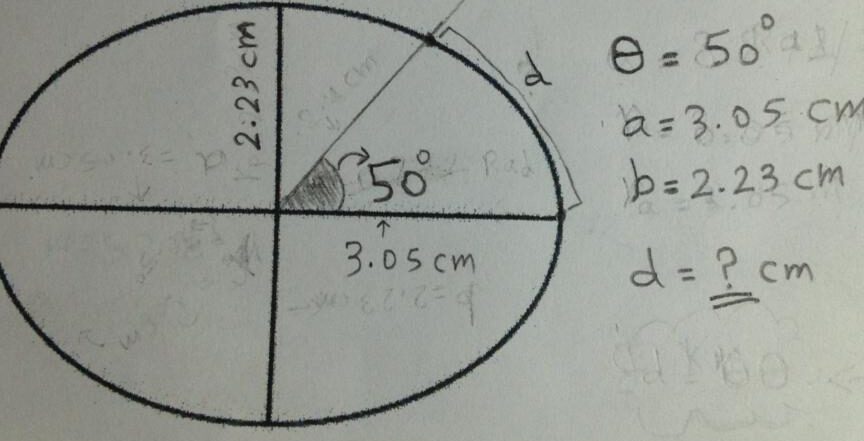 2.23 cm
d
50°
3.05 cm
θ = 50°
a = 3.05 cm
b = 2.23 cm
d = ? cm